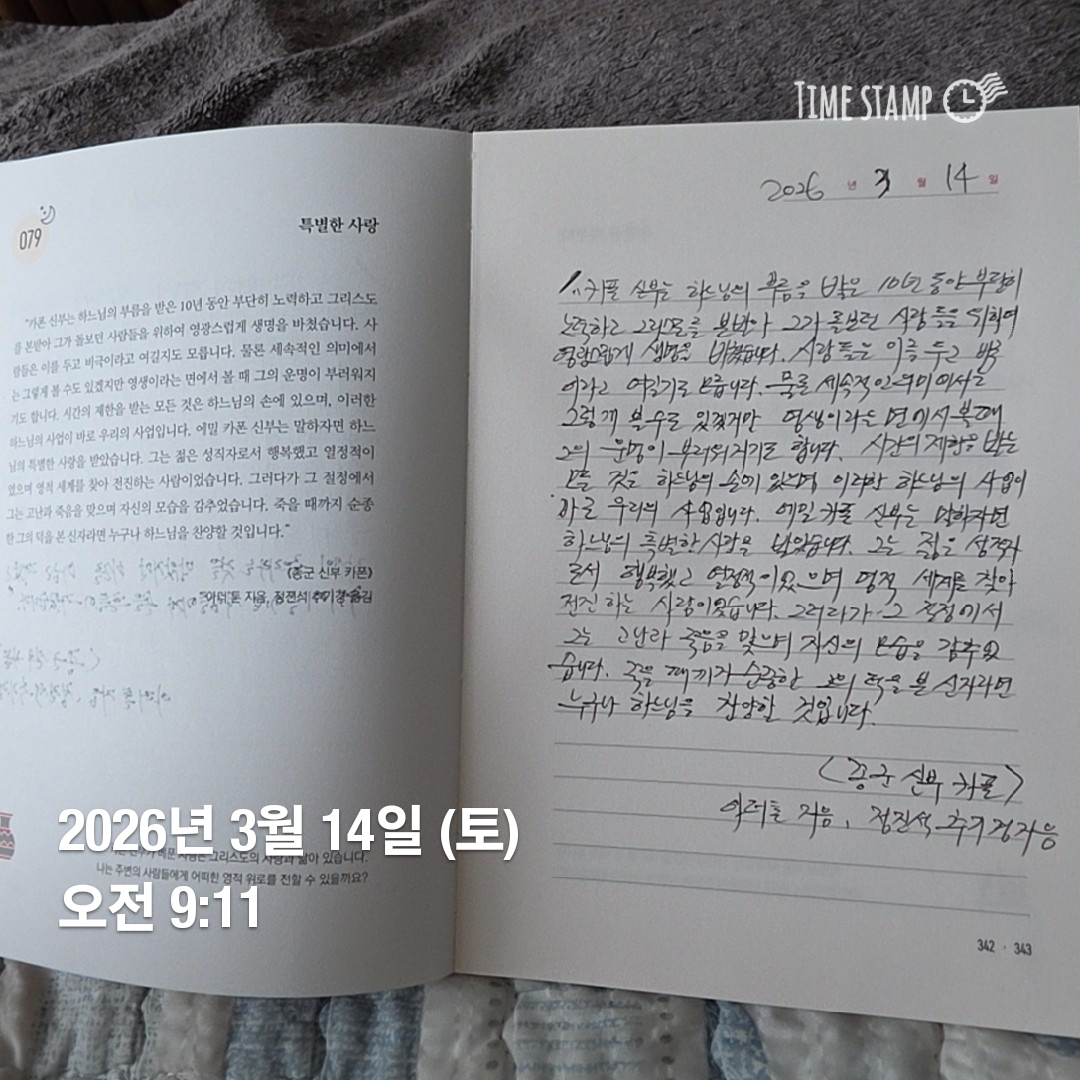 TIME STAMP
079
특별한 사랑
"카폰 신부는 하느님의 부름을 받은 10년 동안 부단히 노력하고 그리스도
를 본받아 그가 돌보던 사람들을 위하여 영광스럽게 생명을 바쳤습니다. 사
람들은 이를 두고 비극이라고 여길지도 모릅니다. 물론 세속적인 의미에서
는 그렇게 볼 수도 있겠지만 영생이라는 면에서 볼 때 그의 운명이 부러워지
기도 합니다. 시간의 제한을 받는 모든 것은 하느님의 손에 있으며, 이러한
하느님의 사업이 바로 우리의 사업입니다. 에밀 카폰 신부는 말하자면 하느
님의 특별한 사랑을 받았습니다. 그는 젊은 성직자로서 행복했고 열정적이
었으며 영적 세계를 찾아 전진하는 사람이었습니다. 그러다가 그 절정에서
그는 고난과 죽음을 맞으며 자신의 모습을 감추었습니다. 죽을 때까지 순종
한 그의 덕을 본 신자라면 누구나 하느님을 찬양할 것입니다."
《종군 신부 카폰》
아더 톤 지음, 정진석 추기경 옮김
그리스도의 사랑과 닮아 있습니다.
나는 주변의 사람들에게 어떠한 영적 위로를 전할 수 있을까요?
2026년 3월 14일
신부는 하느님의 부름을 받은 10년 동안
노력하고 그가 돌보던 사람들을 위하여
생명을 바쳤습니다. 사람들은 이를 두고
여길지도 모릅니다. 물론 세속적인
그렇게 볼수도 있겠지만 영생이라는 면에서 볼때
그의 운명이 부러워지기도 합니다. 시간의 제한을 받는
모든 것은 하느님의 손에 있으며 이러한 하느님의 사업이
바로 우리의 사업입니다. 에밀 신부는 말하자면
하느님의 특별한 사랑을 받았습니다. 그는 젊은 성직자
로서 행복했고 열정적이었으며 영적 세계를 찾아
전진하는 사람이었습니다. 그러다가 그 절정에서
그는 죽음을 맞으며 자신의 모습을 감추었
습니다. 죽을 때까지 순종한 그의 덕을 본 신자라면
누구나 하느님을 찬양할 것입니다.
<종군 신부 >
지음, 정진석 추기경
342 · 343
2026년 3월 14일 (토)
오전 9:11